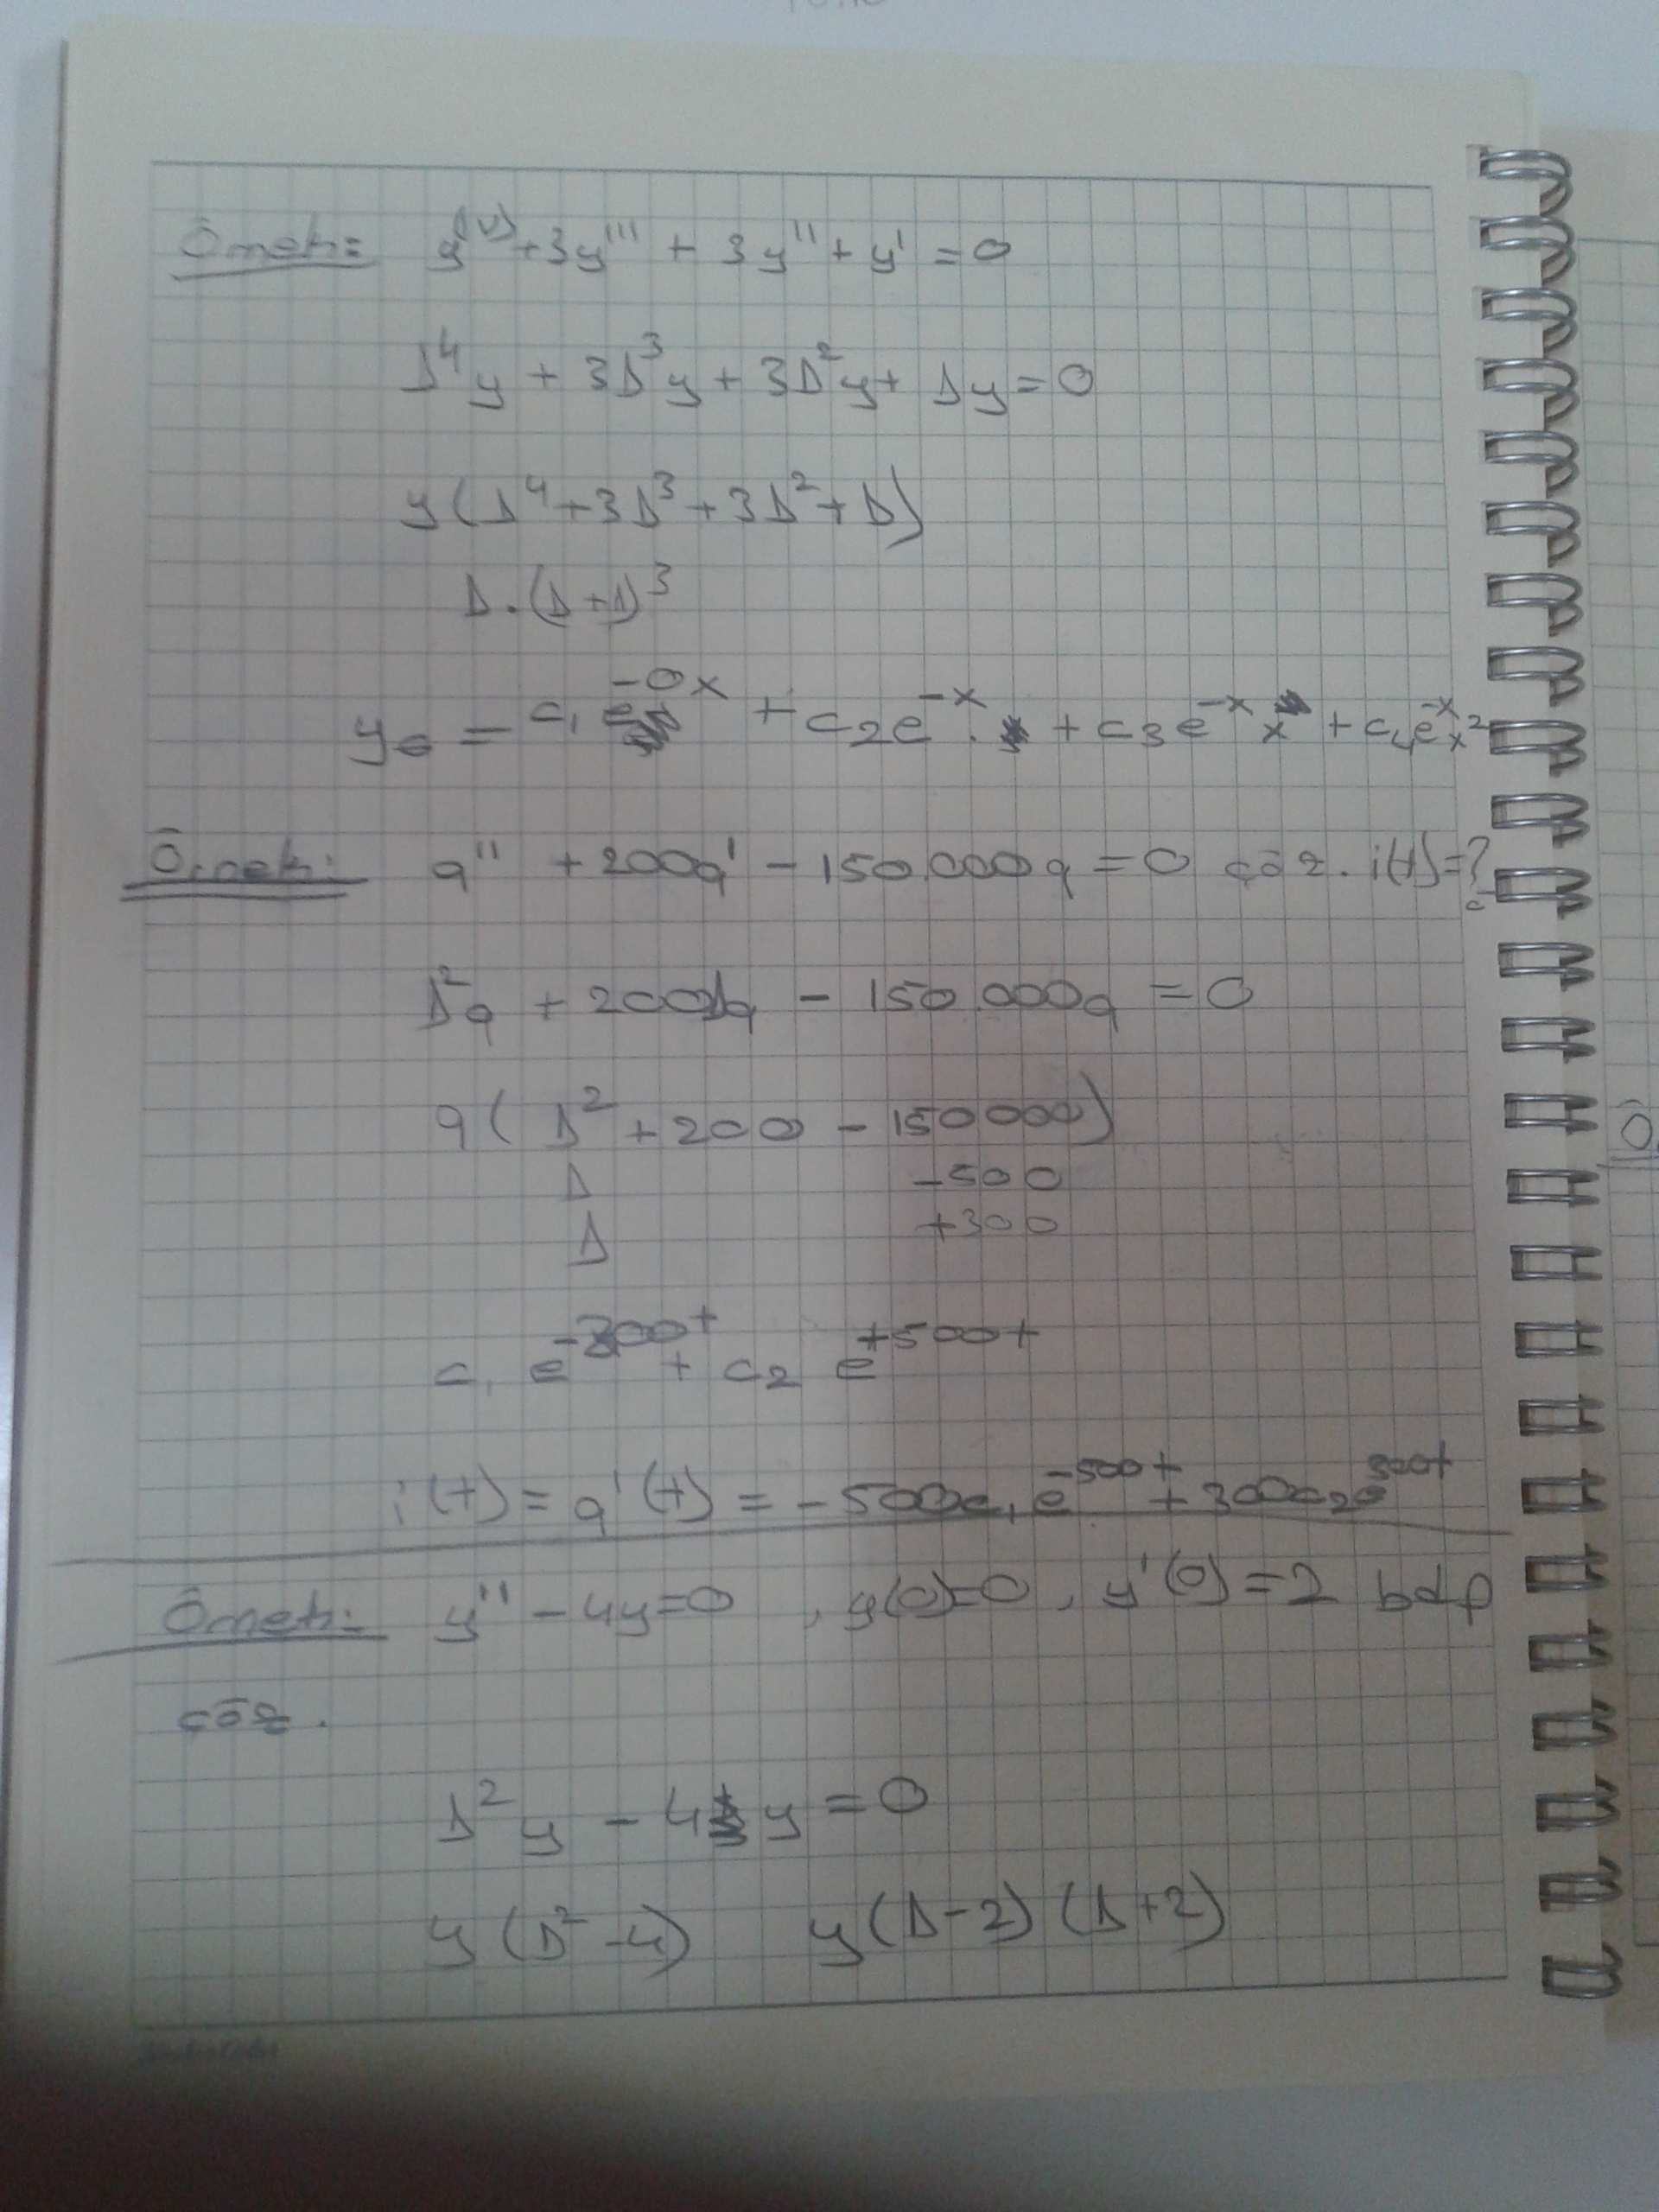 Örnek: y^(IV) + 3y''' + 3y'' + y' = 0
D⁴y + 3D³y + 3D²y + Dy = 0
y(D⁴ + 3D³ + 3D² + D)
D.(D+1)³
= c₁e^(-0x) + c₂e^(-x) . + c₃e^(-x) x + c₄e^(-x) x²
Örnek: q'' + 200q' - 150.000q = 0 çöz. i(t) = ?
D²q + 200Dq - 150.000q = 0
q(D² + 200 - 150000)
D -500
D +300
c₁ e^(-300t) + c₂ e^(+500t)
i(t) = q'(t) = -500c₁e^(-500t) + 300c₂e^(300t)
Örnek: y'' - 4y = 0 , y(0)=0, y'(0) = 2 bdp
çöz.
D²y - 4y = 0
y(D²-4) y(D-2)(D+2)
Ö